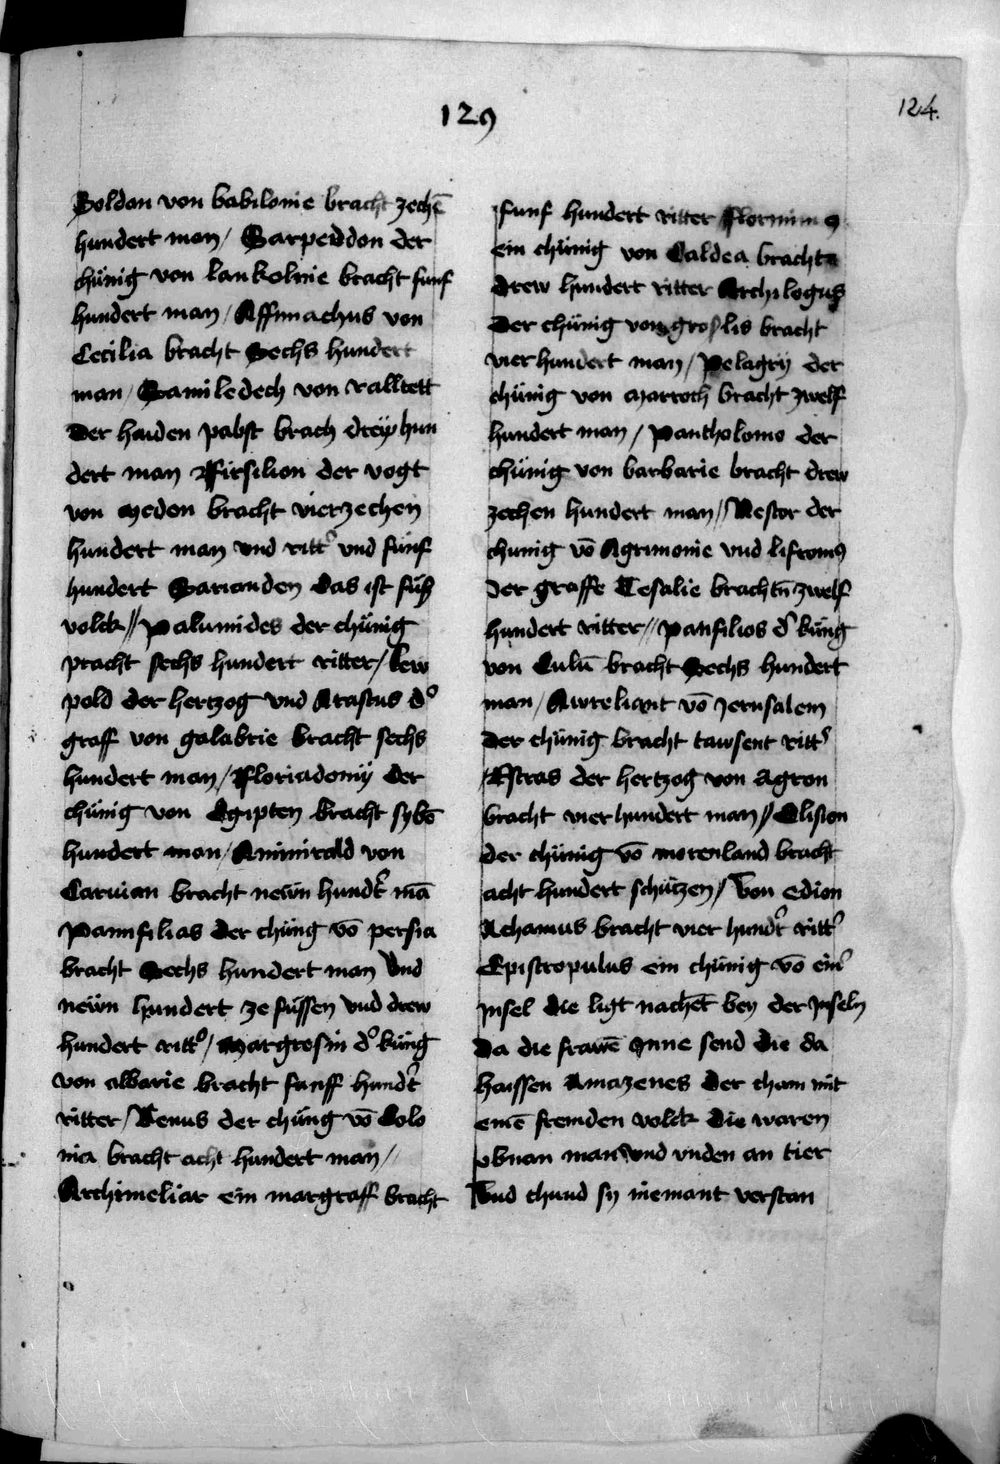 129
124.
Soldan von babilonie bracht zechē
hundert man / Sarpeddon der
chünig von lankolnie bracht funf
hundert man / Affimachus von
Cecilia bracht Sechs hundert
man / Samiledech von ralltett
Der haiden pabst brach dreÿ hun
dert man Firsilion der vogt
von Medon bracht vierzechen
hundert man vnd ritt' vnd fünf
hundert Sarianden das ist füß
volck // Palumides der chünig
pracht sechs hundert ritter / Lew
pold der hertzog vnd Arastus d'
graff von galabrie bracht sechs
hundert man / Floriadomÿ der
chünig von Egipten bracht sybē
hundert man / Amimrald von
Caruian bracht newn hundt' mā
Pamfilias der chüng vō persia
bracht Sechs hundert man Vnd
newn hundert ze füssen vnd drew
hundert ritt' / Margrosin d' küng
von albarie bracht fanff hundt'
ritter / Venus der chüng vō Colo
nia bracht acht hundert man //
Archimeliar ein margraff bracht
funf hundert ritter Flornimus
ein chünig von Caldea bracht
drew hundert ritter Archilogus
Der chünig von groslis bracht
vier hundert man / Pelagrÿ der
chünig von Marroch bracht zwelf
hundert man / Pantholomo der
chünig von barbarie bracht drew
zechen hundert man // Nestor der
chunig vō Agrimonie vnd lifromus
Der graffe Tesalie brachtn̄ zwelf
hundert ritter // Panfilios d' küng
von Culū bracht Sechs hundert
man / Awreliant vō Jerusalem
Der chünig bracht tawsent ritt'
/ Estras der hertzog von Agron
bracht vier hundert man // Elision
der chünig vō morenland bracht
acht hundert schützen / Von edion
Achamus bracht vier hundt' ritt'
Epistropulus ein chünig vō ein'
Jnsel die ligt nachet bey der Jnseln
Da die frawē Jnne send die da
haissen Amazenes Der cham mit
einē fremden volck die waren
obnan man vnd vnden an tier
Vnd chund sy niemant verstan